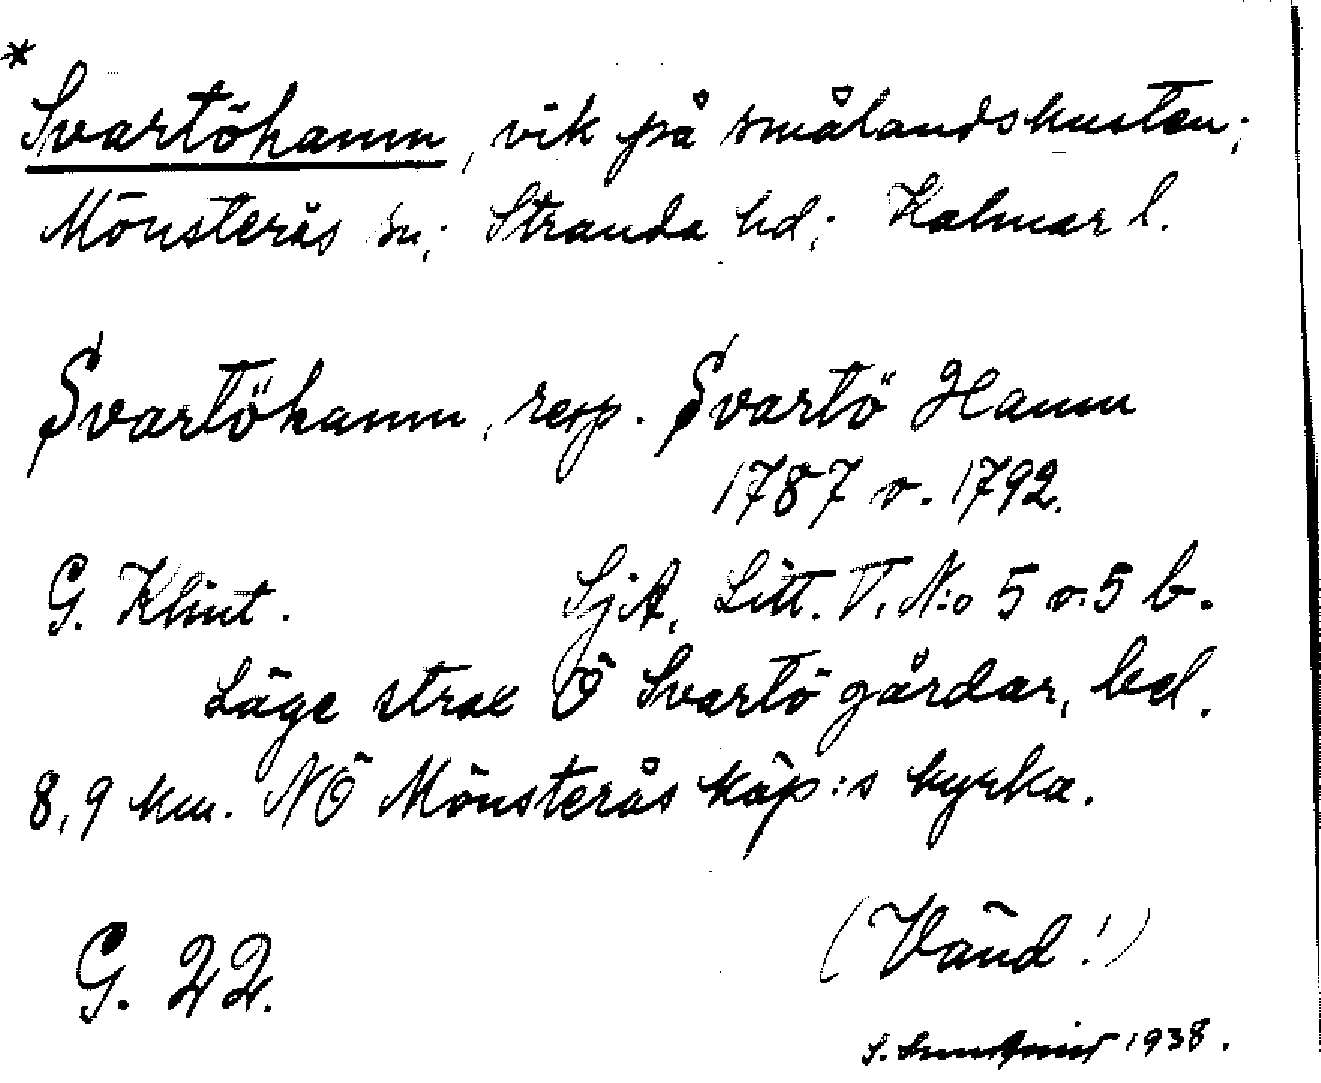 *
Svartöhamn, vik på smålandskusten;
Mönsterås sn; Stranda hd; Kalmar l.
Svartöhamn, resp. Svartö Hamn
1787 o. 1792.
G. Klint. SjA, Litt. V. N:o 5 o. 5 b.
Läge strax Ö Svartö gårdar, bel.
8,9 km. NÖ Mönsterås köp:s kyrka.
G. 22.
(Vänd!)
S. 1938.